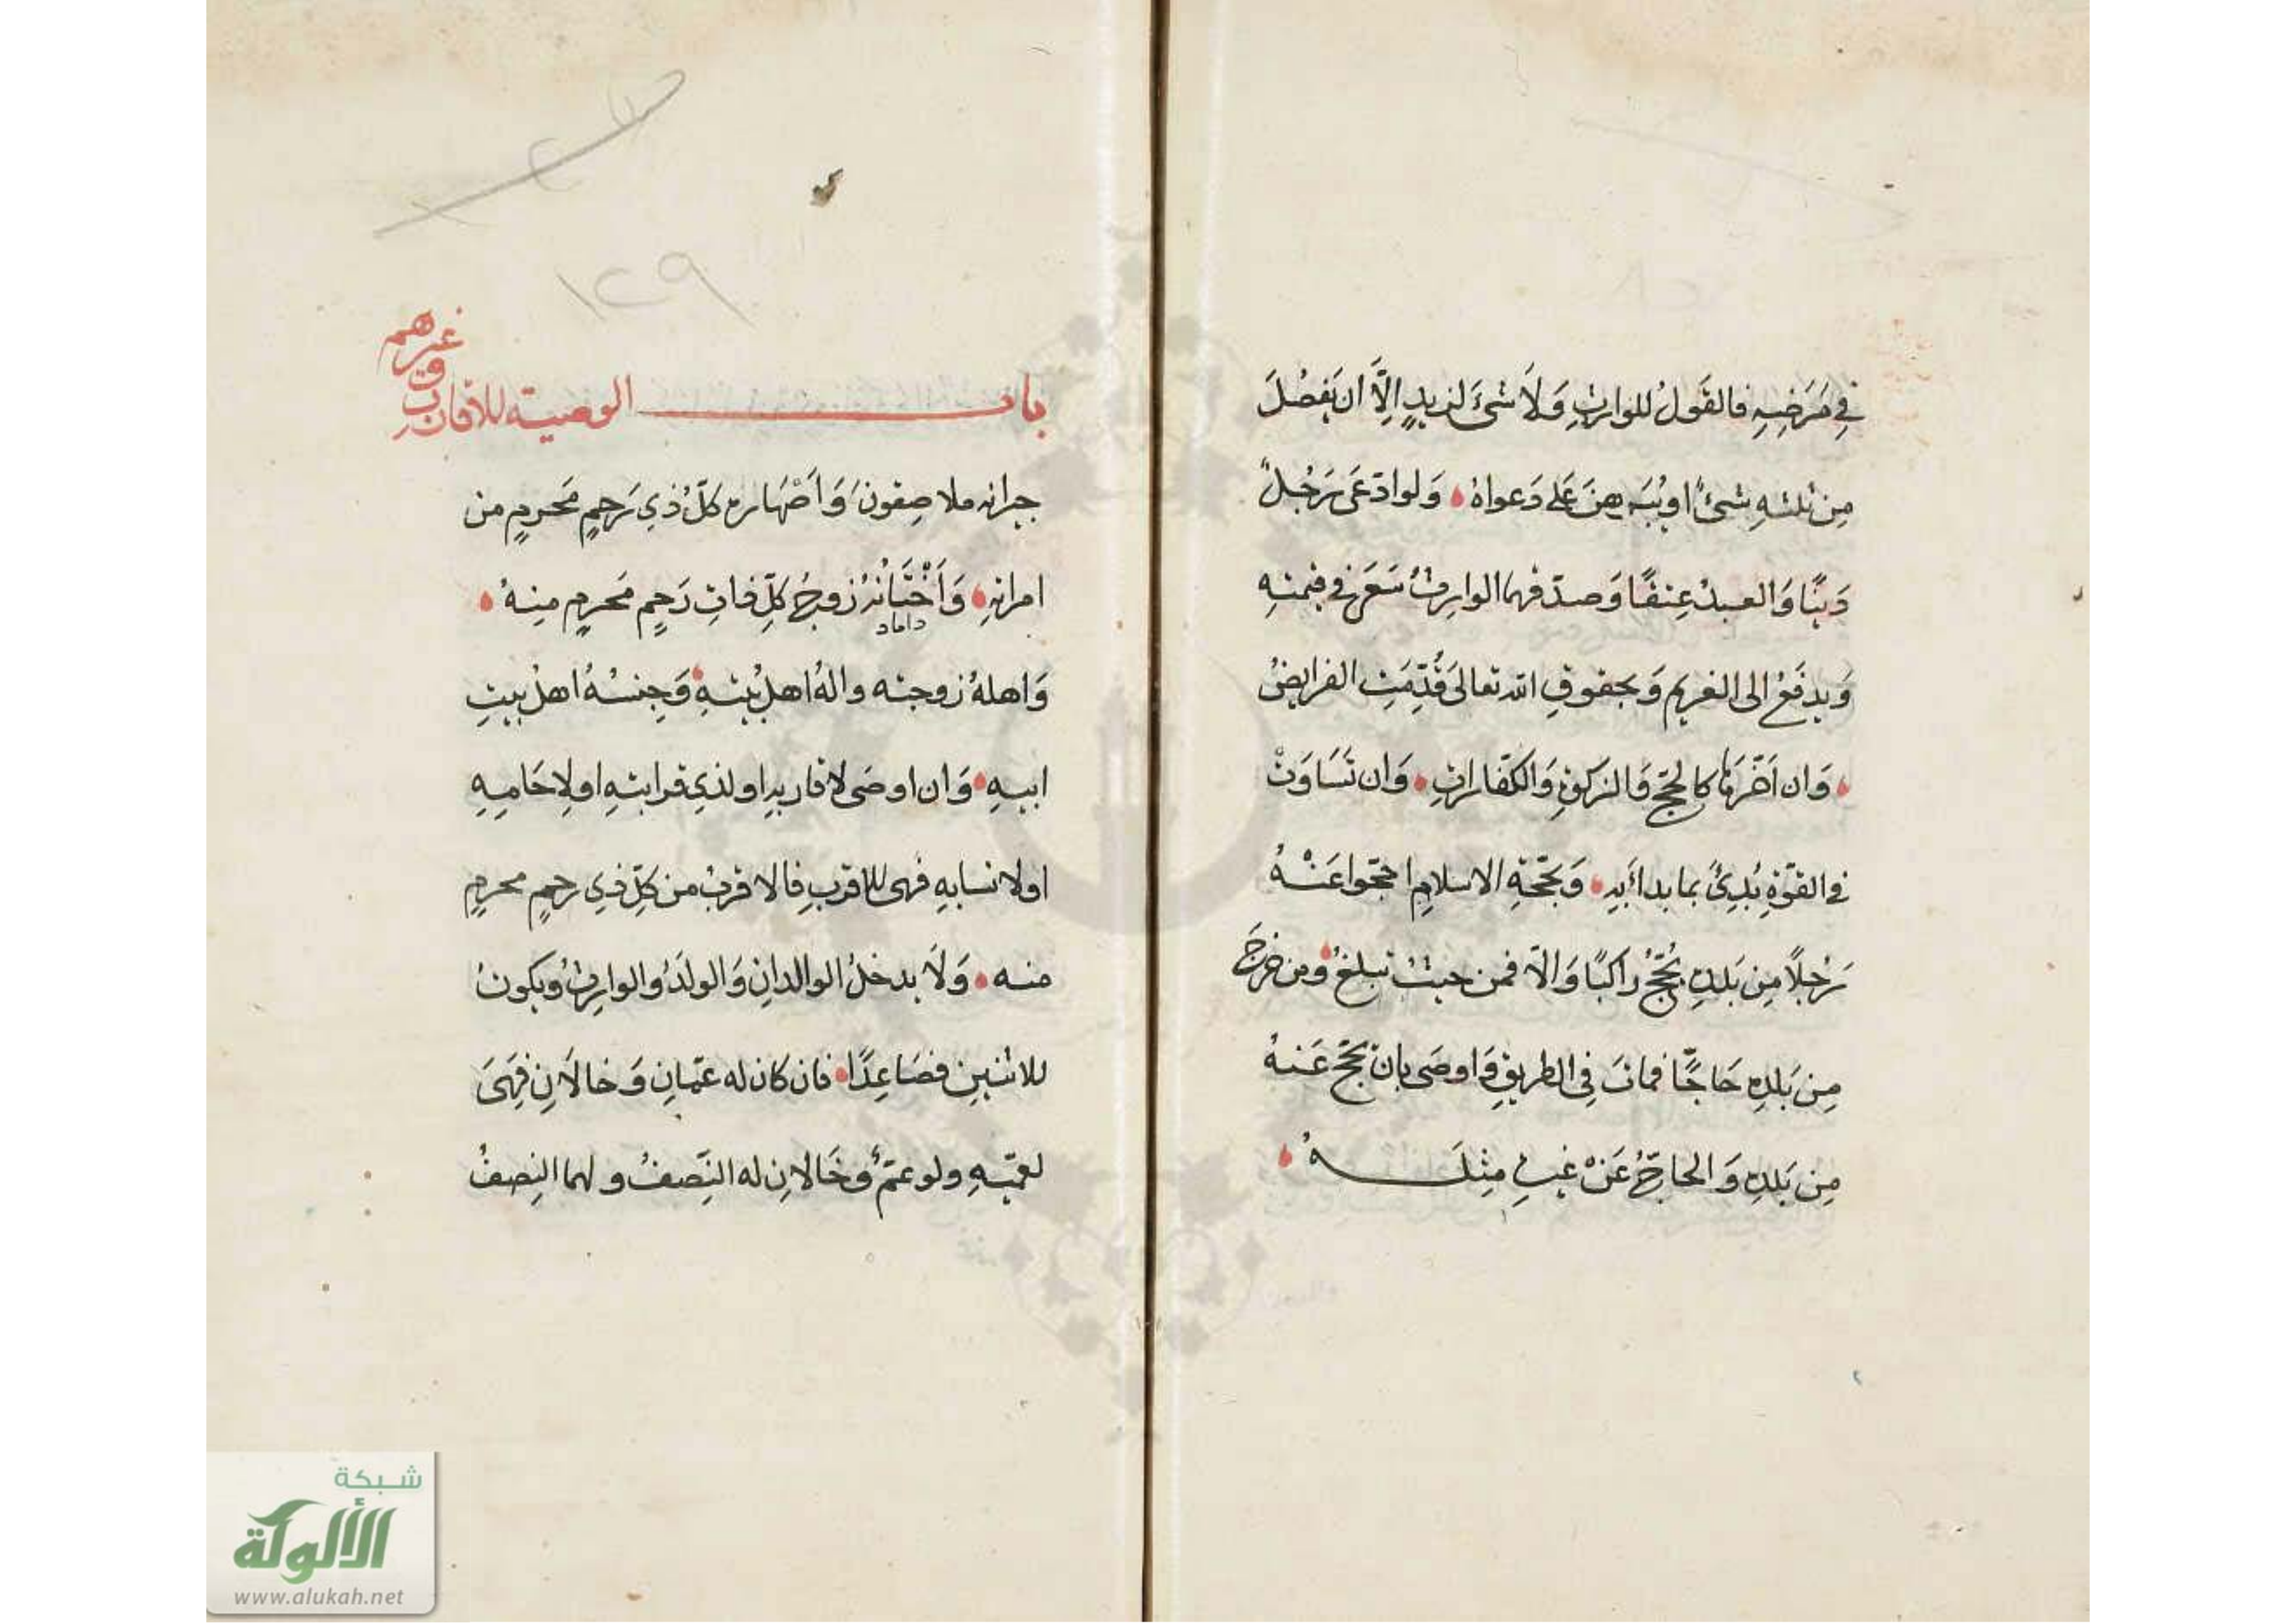 في مَرَضِهِ فالقَولُ للوارِثِ وَلَا شَئَ لزيدٍ الِّا ان يَفضُلَ
مِن ثلثهِ شئٌ او يُبَرهِنَ عَلى دَعواهُ وَلو ادّعَى رَجُلٌ
دَينًا وَالعبدُ عِتقًا وَصدّقهما الوارِثُ سَعَى في قيمتِهِ
وَيدفَعُ الى الغريم وَبحقوقِ الله تعالىَ قُدِّمَتِ الفرايضُ
وَان اَخّرَهَا كالحَجّ وَالزكوةِ وَالكفّاراتِ وَان تَسَاوَتْ
في القوّةِ بُدِئَ بما بدأبِهِ وَبحَجّةِ الاسلامِ احَجّوا عَنْهُ
رَجُلًا مِن بَلدِهِ يَحُجُّ راكبًا وَالّا فمن حيثُ تبلغُ ومن خرجَ
مِن بَلدِهِ حَاجًّا فماتَ في الطريقِ وَاوصَى بان يحَجّ عَنهُ
مِن بَلدِهِ وَالحاجّ عَنْ غيرِهِ مِثلَـــهُ
١٢٩
باب الوصية للاقارب وغيرهم
جيرانه ملاصِقونَ وَاَصْهَاره كلُّ ذي رَحِمٍ مَحرمٍ من
امراتِهِ وَاَخْتَانُهُ زوجُ كلِّ ذاتِ رَحِمٍ مَحرمٍ مِنهُ
داماد
وَاهلهُ زوجته والهُ اهلُ بيتِهِ وَجِنسُهُ اهلُ بيتِ
ابيهِ وَان اوصَى لاقاربهِ او لذي قرابتهِ او لارحَامِهِ
او لانسابهِ فهى للاقربِ فالاقربُ من كلِّ ذي رحِمٍ محرمٍ
منه وَلَا يدخلُ الوالدانِ وَالولَدُ والوارِثُ ويكونُ
للاثنينِ فصَاعِدًا فان كان له عَمّانِ وَخالَانِ فهِىَ
لعمّيهِ ولو عمٌّ وخَالانِ له النِّصفُ ولهما النِصفُ
شبكة
الألوكة
www.alukah.net